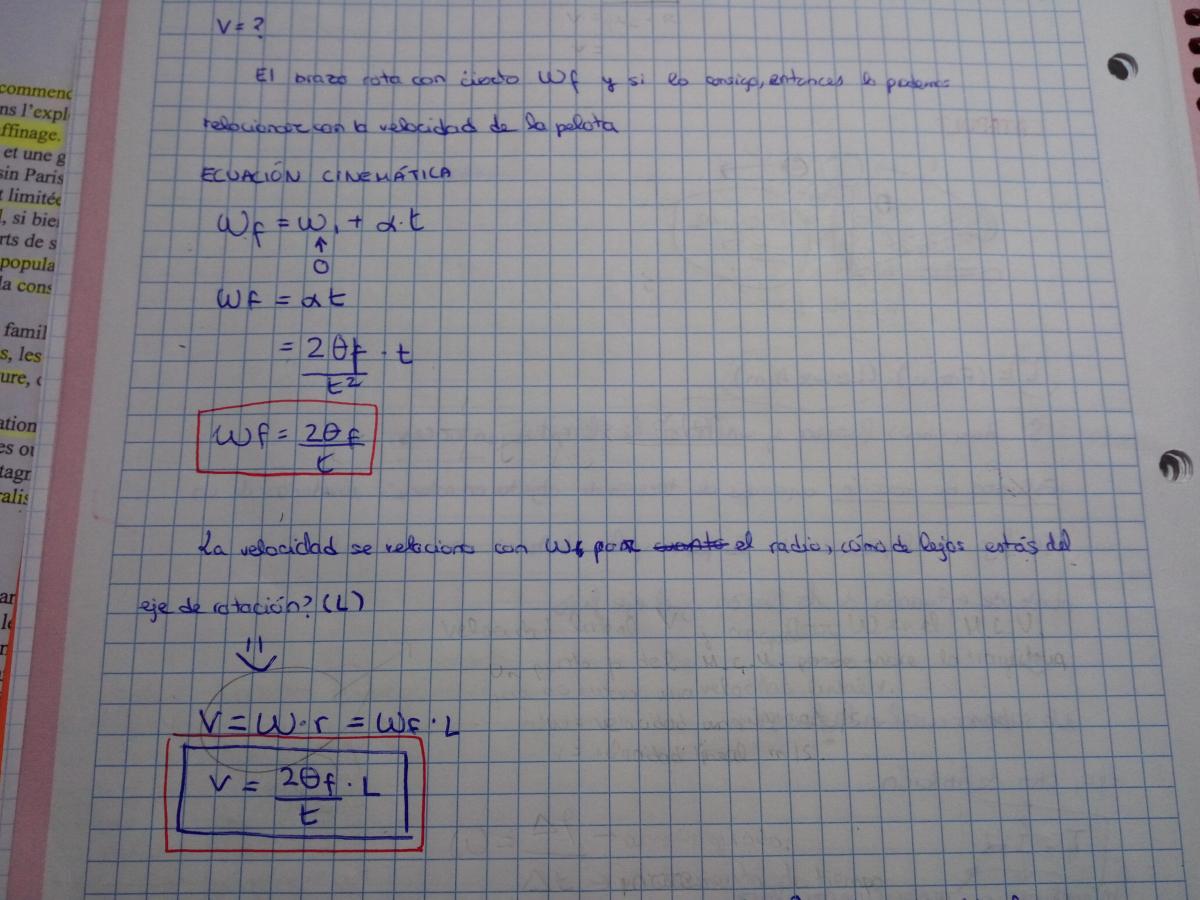 commend
ns l'expl
ffinage.
et une g
sin Paris
t limitée
l, si bie
rts de s
popula
la cons
famil
s, les
ture, c
ation
es ou
tagr
ralis
ar
V = ?
El brazo rota con cierto Wf y si lo consigo, entonces lo podemos
relacionar con la velocidad de la pelota
ECUACIÓN CINEMÁTICA
Wf = Wi + α·t
↑
0
Wf = αt
= 2θf/t² · t
Wf = 2θf/t
La velocidad se relaciona con Wf por el radio, cómo de lejos estás del
eje de rotación? (L)
V = W·r = Wf·L
V = 2θf/t · L